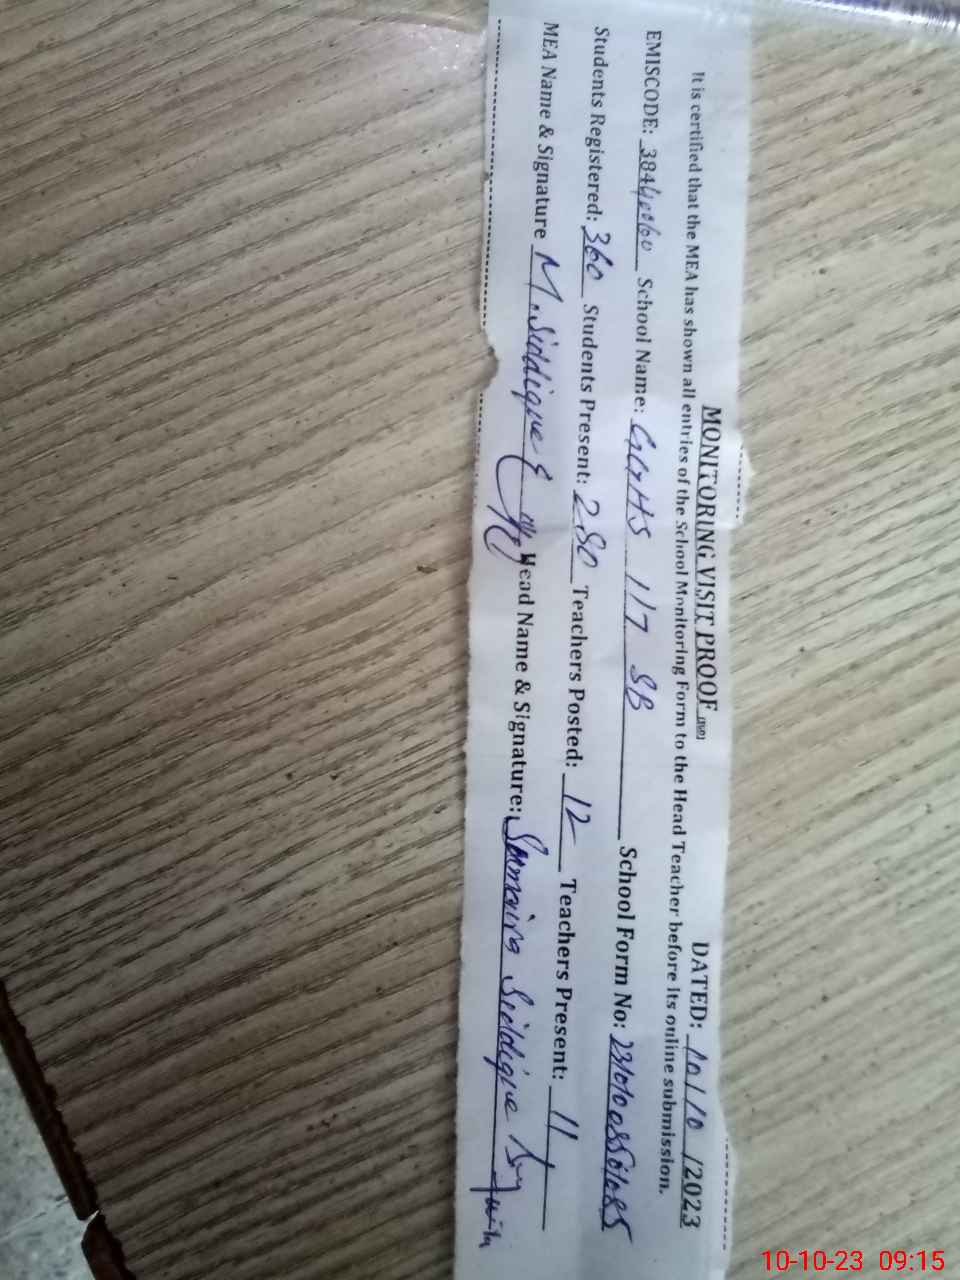 MONITORING VISIT PROOF DATED: 10/10/2023
It is certified that the MEA has shown all entries of the School Monitoring Form to the Head Teacher before its online submission.
EMISCODE: School Name: GGHS 117 SB School Form No:
Students Registered: 360 Students Present: 280 Teachers Posted: 12 Teachers Present: 11
MEA Name & Signature M. Siddique Head Name & Signature: Sumaira Siddique
10-10-23 09:15